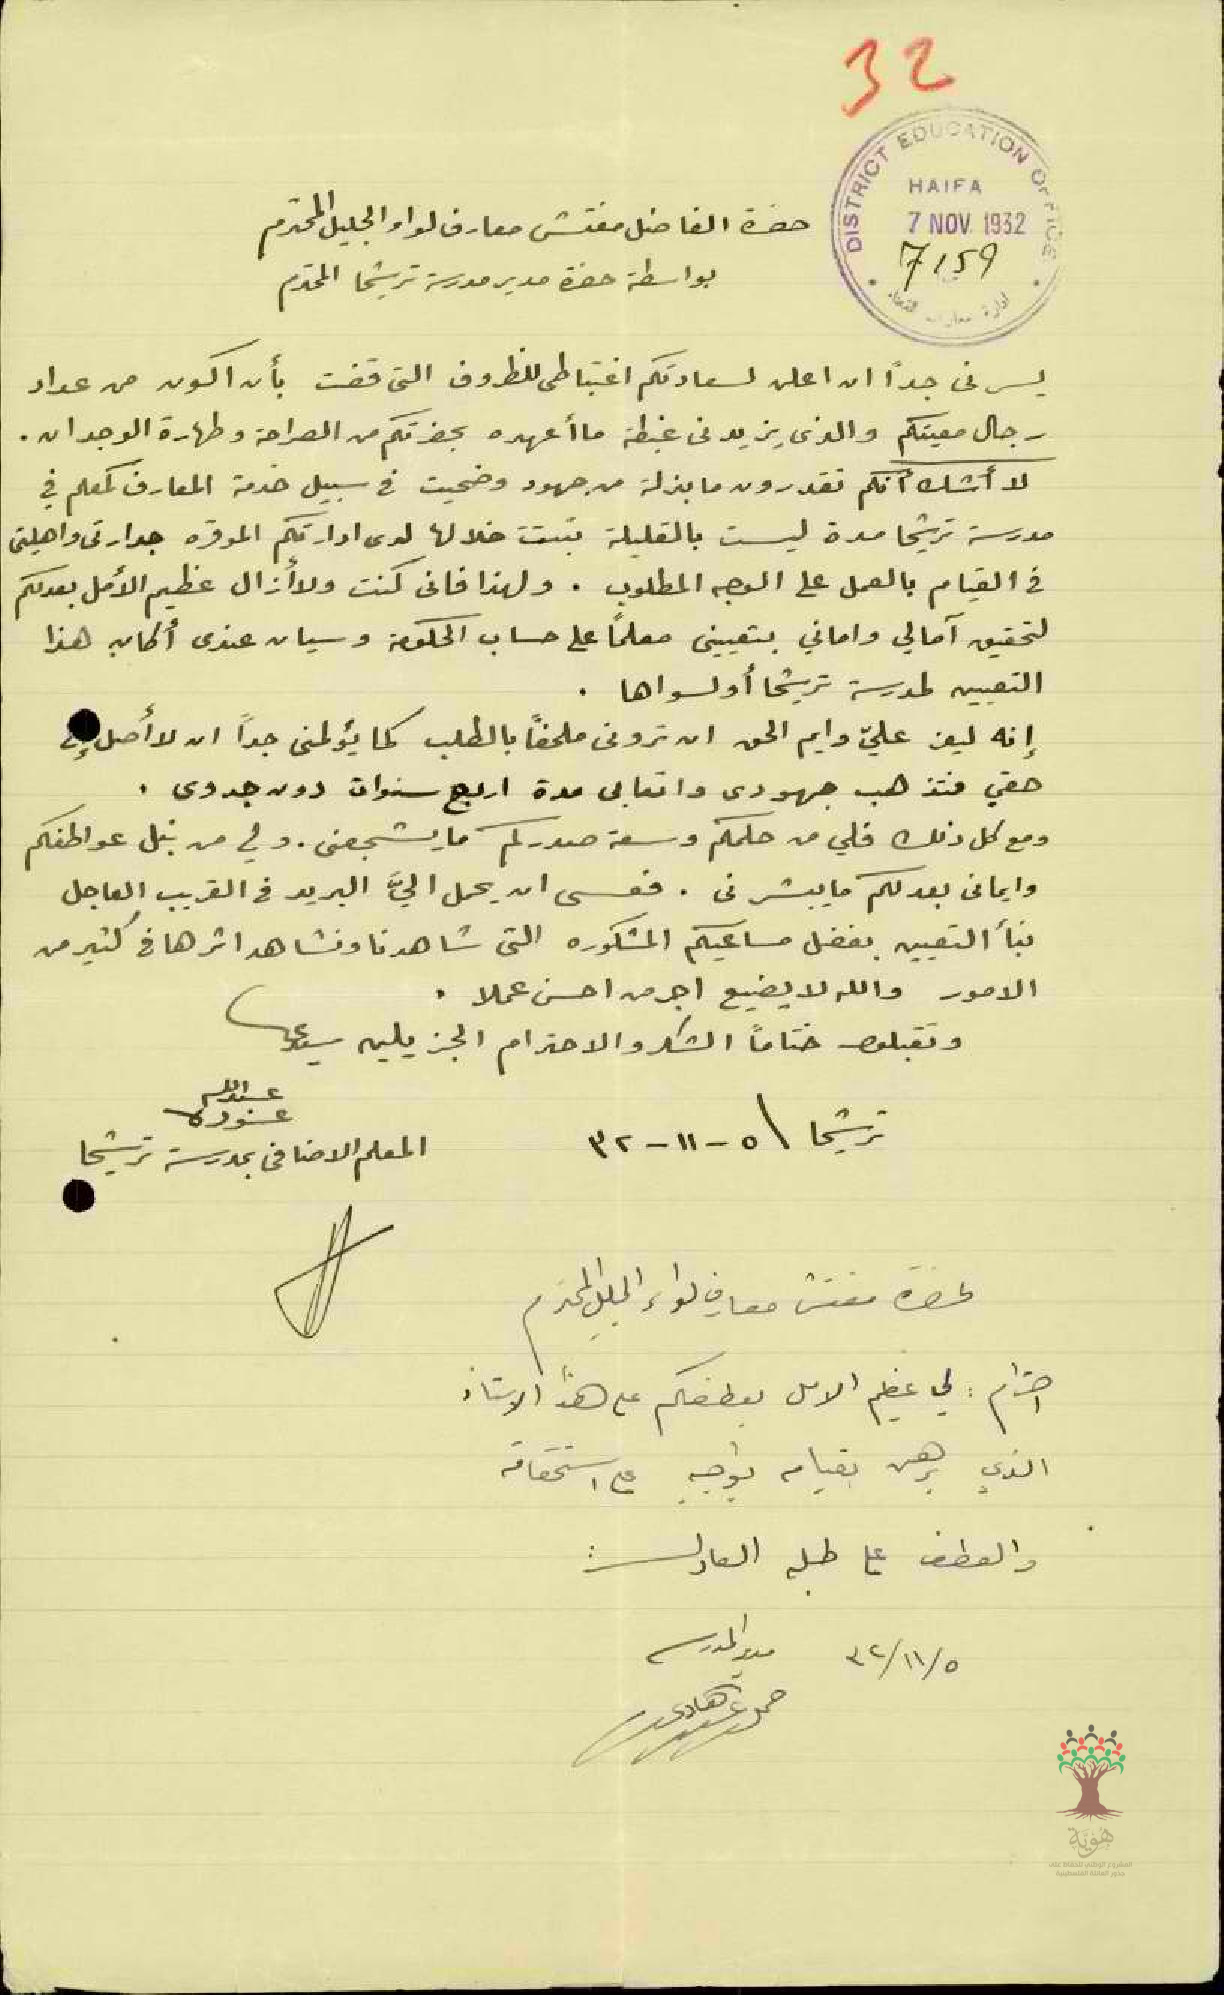 32
DISTRICT EDUCATION OFFICE
HAIFA
7 NOV 1932
7159
ادارة معارف القضاء
حضرة الفاضل مفتش معارف لواء الجليل المحترم
بواسطة حضرة مدير مدرسة ترشيحا المحترم
يسرنى جداً ان اعلن لسعادتكم اغتباطى للظروف التى قضت بأن اكون من عداد
رجال معيتكم والذى يزيدنى غبطة ما أعهده بحضرتكم من الصراحة وطهارة الوجدان .
لا أشك أنكم تقدرون ما بذلة من جهود وضحيت في سبيل خدمة المعارف كمعلم في
مدرسة ترشيحا مدة ليست بالقليلة تثبتت خلالها لدى ادارتكم الموقره جدارتى واهليتى
فى القيام بالعمل على الوجه المطلوب . ولهذا فانى كنت ولا أزال عظيم الأمل بعدلكم
لتحقيق آمالي واماني بتعيينى معلماً على حساب الحكومة وسيان عندى أكان هذا
التعيين لمدرسة ترشيحا أو لسواها .
إنه ليعز عليّ وايم الحق ان ترونى ملحفاً بالطلب كما يؤلمنى جداً ان لا أصل إلى
حقي فتذهب جهودى واتعابى مدة اربع سنوات دون جدوى .
ومع كل ذلك فلي من حلمكم وسعة صدركم ما يشجعنى . ولي من نبل عواطفكم
وايمانى بعدلكم ما يبشرنى . فعسى ان يحمل اليَّ البريد فى القريب العاجل
نبأ التعيين بفضل مساعيكم المشكوره التى شاهدنا ونشاهد اثرها فى كثير من
الامور والله لا يضيع اجر من احسن عملا .
وتقبلوا ختاماً الشكر والاحترام الجزيلين سيدى
ترشيحا \ ٥-١١-٣٢
عبدالله
المعلم الاضافى بمدرسة ترشيحا
لحضرة مفتش معارف لواء الجليل المحترم
احترام : لي عظيم الامل بعطفكم على هذا الاستاذ
الذي برهن بقيامه بواجبه على استحقاقه
والعطف على طلبه العادل
٥/١١/٣٢
مدير المدرسة
هوية
المشروع الوطني للحفاظ على
جذور العائلة الفلسطينية